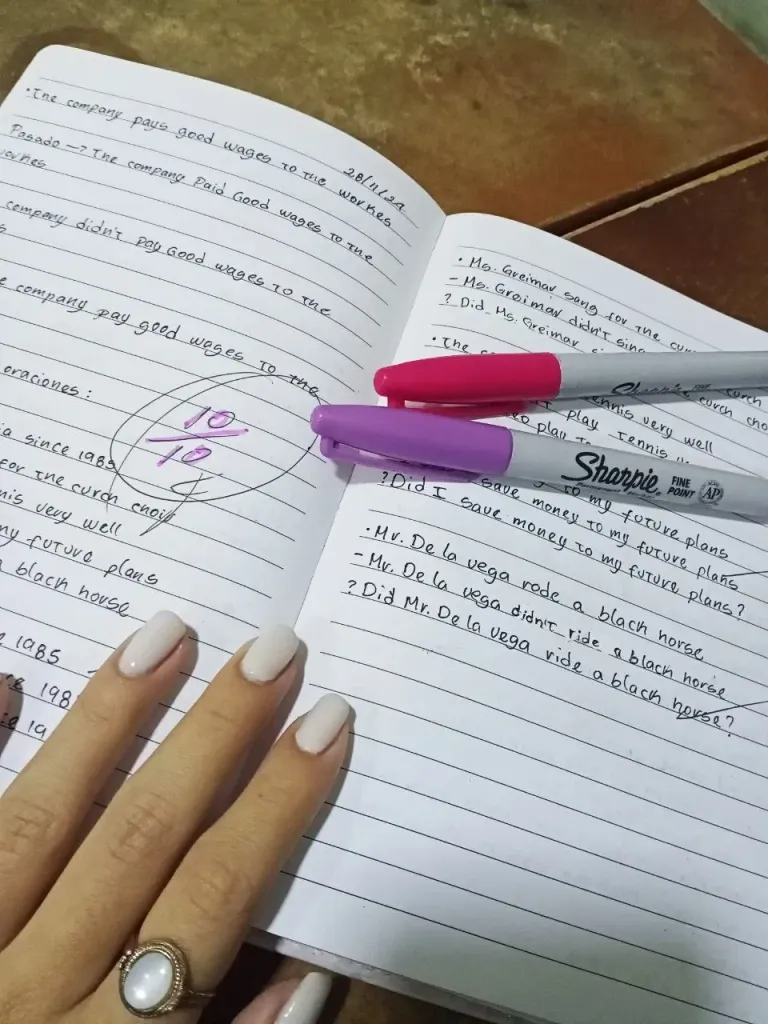 • The company pays good wages to the workes
28/11/24
Pasado → The company Paid Good wages to the
workes
company didn't pay Good wages to the
company pay good wages to the
oraciones:
10
10
since 1985
for the curch choir
very well
my future plans
black horse
1985
• Ms. Greimar sang for the
- Ms. Greimar didn't
? Did Ms. Greimar
• The
curch
curch
tennis very well
play tennis
play
to my future plans
save money to my future plans
? Did I save money to my future plans?
• Mr. De la vega rode a black horse
- Mr. De la vega didn't ride a black horse
? Did Mr. De la vega ride a black horse?
Sharpie
Sharpie FINE POINT AP